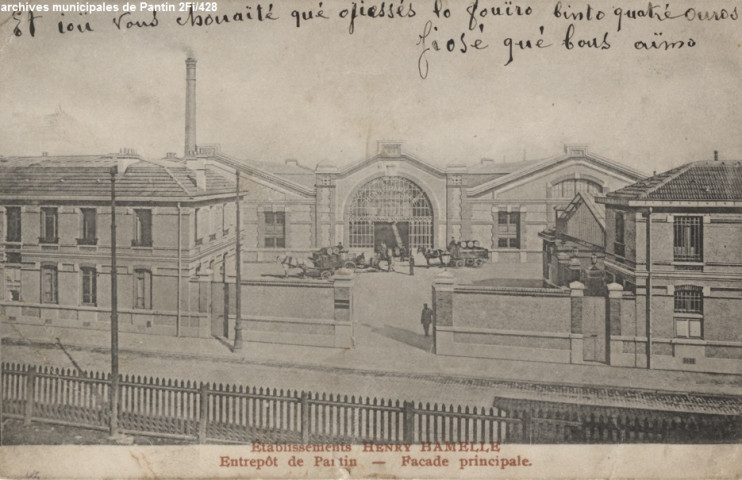 archives municipales de Pantin 2FI/428
Et ioü vous chouaité qué ojessés lo fouïro binto quatré ouros
fiosé qué bous aïmo
Établissements HENRY HAMELLE
Entrepôt de Pantin — Facade principale.